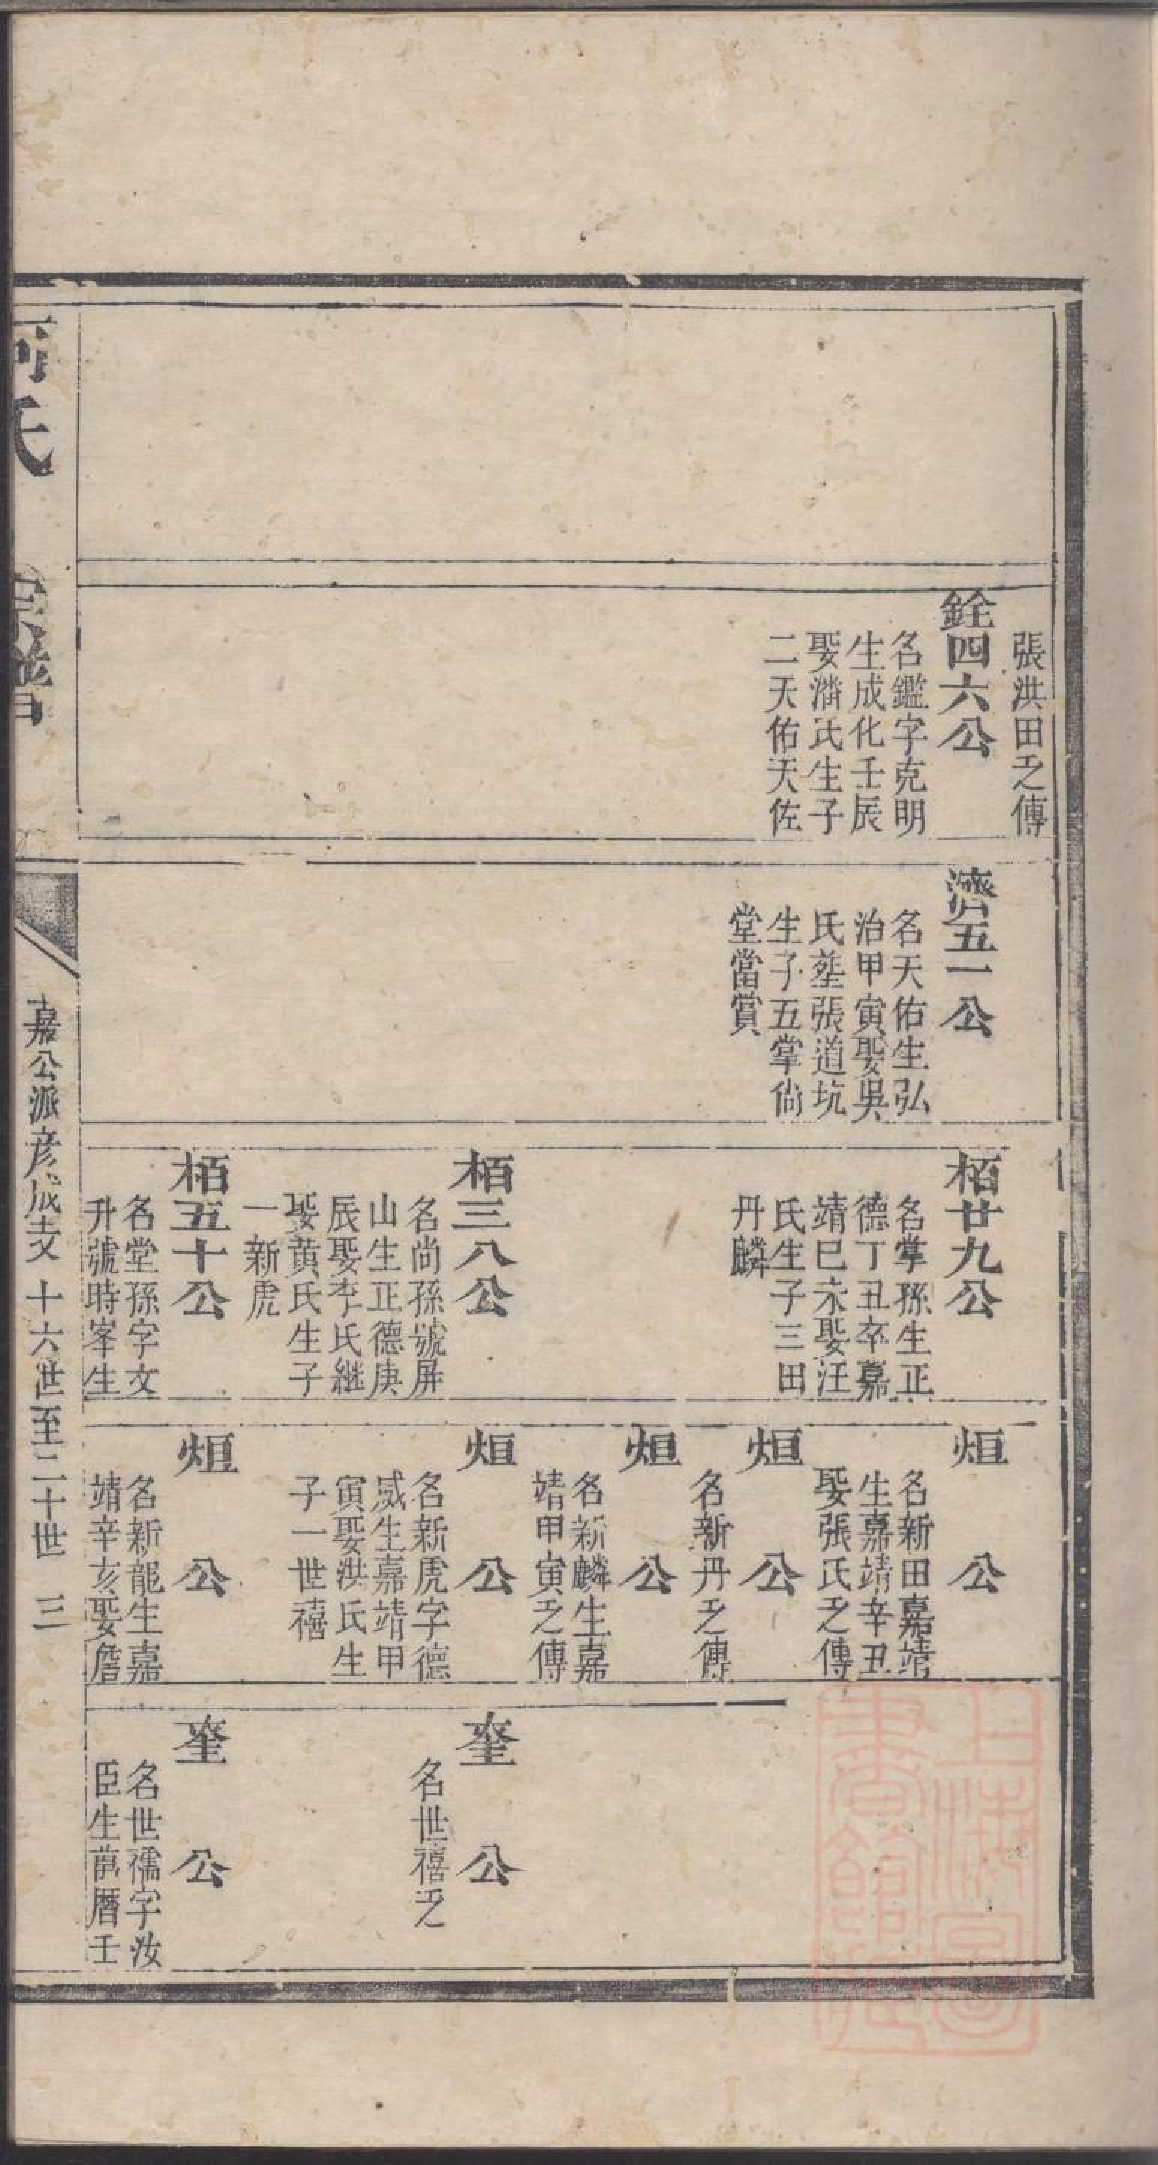 張洪田乏傳
銓四六公
名鑑字克明
生成化壬辰
娶潘氏生子
二天佑天佐
濟五一公
名天佑生弘
治甲寅娶吳
氏塟張道坑
生子五掌尙
堂當賞
栢廿九公
名掌孫生正
德丁丑卒嘉
靖巳未娶汪
氏生子三田
丹麟
栢三八公
名尚孫號屏
山生正德庚
辰娶李氏繼
娶黄氏生子
一新虎
栢五十公
名堂孫字文
升號時峯生
烜公
名新田嘉靖
生嘉靖辛丑
娶張氏乏傳
烜公
名新丹乏傳
烜公
名新麟生嘉
靖甲寅乏傳
烜公
名新虎字德
威生嘉靖甲
寅娶洪氏生
子一世禧
烜公
名新龍生嘉
靖辛亥娶詹
坴公
名世禧乏
坴公
名世儒字汝
臣生萬曆壬
何氏 宗譜
嘉公派彥成支 十六世至二十世 三
上海圖書館藏